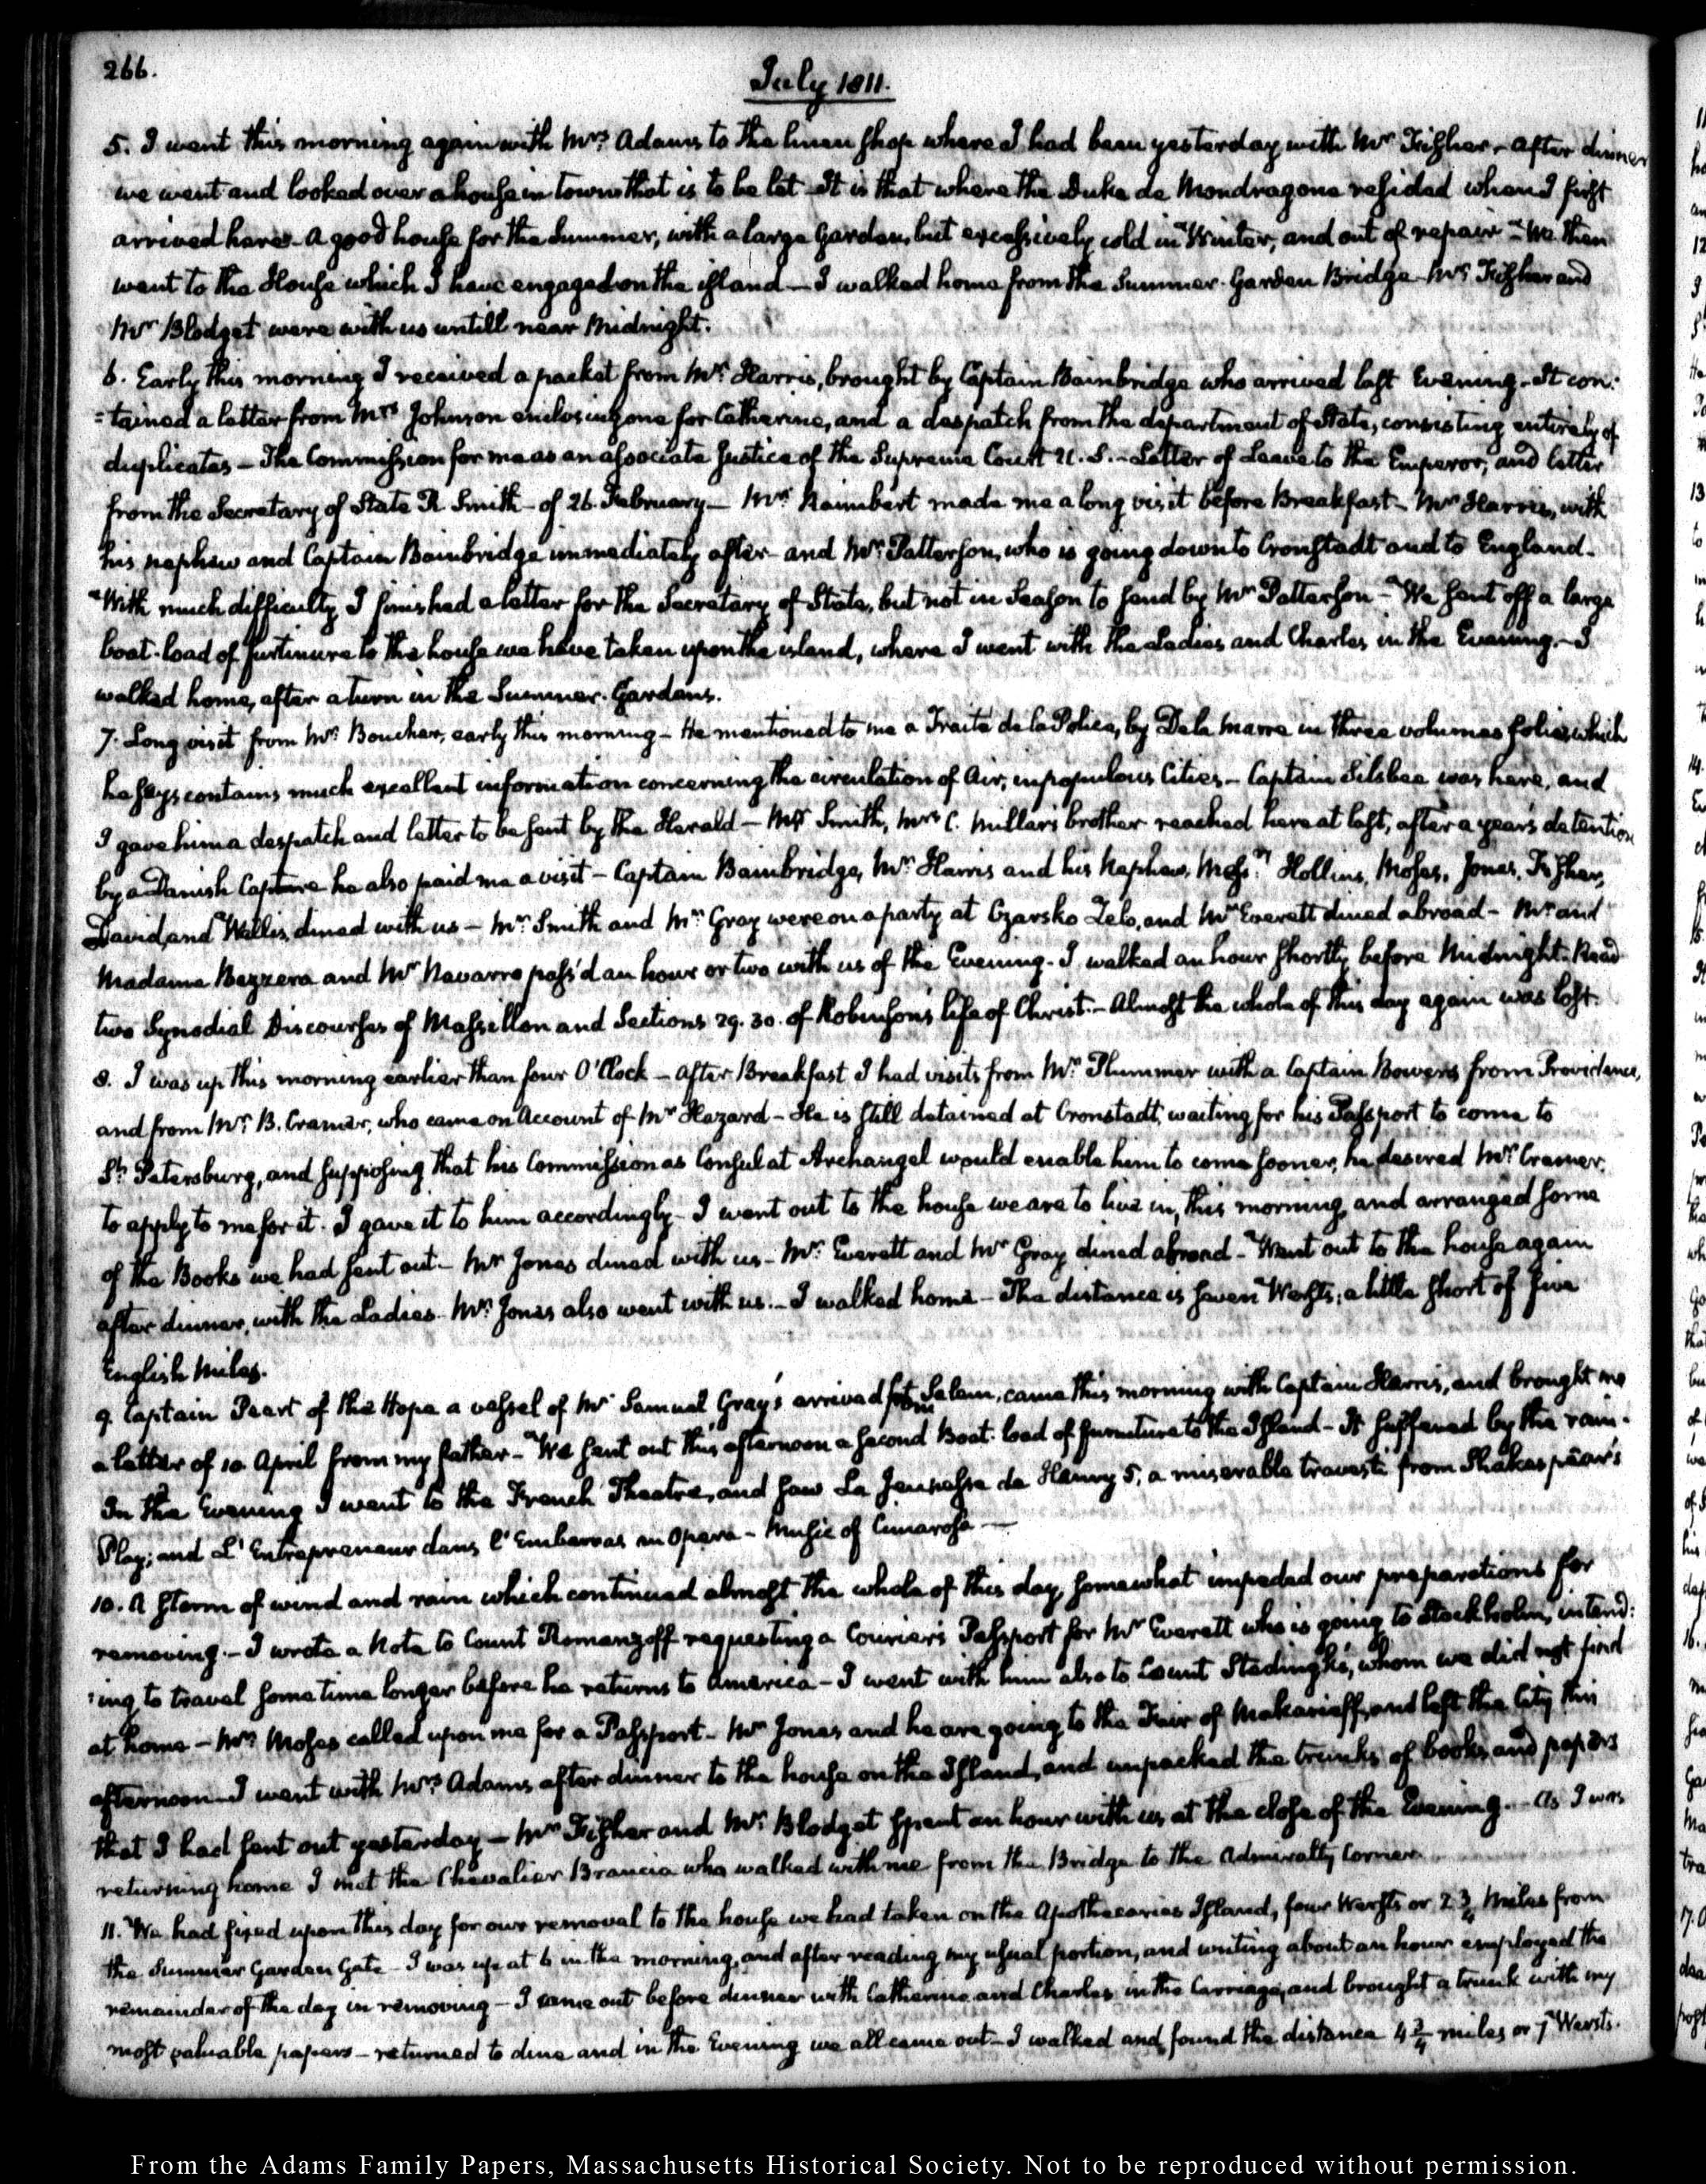 266.
July 1811.
5. I went this morning again with Mrs. Adams to the linen shop where I had been yesterday with Mr Fisher. After dinner
we went and looked over a house in town that is to be let. It is that where the Duke de Mondragone resided when I first
arrived here. A good house for the Summer, with a large Garden, but excessively cold in Winter, and out of repair - We then
went to the House which I have engaged on the island — I walked home from the Summer-Garden Bridge. Mr Fisher and
Mr Blodget were with us untill near Midnight.
6. Early this morning I received a packet from Mr. Harris, brought by Captain Bainbridge who arrived last Evening. It con:
:tained a letter from Mrs Johnson enclosing one for Catherine, and a despatch from the department of State, consisting entirely of
duplicates — The Commission for me as an associate Justice of the Supreme Court U.S. — Letter of Leave to the Emperor, and letter
from the Secretary of State R. Smith of 26. February — Mr. Raimbert made me a long visit before Breakfast - Mr Harris, with
his nephew and Captain Bainbridge immediately after and Mr. Patterson, who is going down to Cronstadt and to England.
With much difficulty I finished a letter for the Secretary of State, but not in Season to send by Mr Patterson - We sent off a large
boat-load of furtinure to the house we have taken upon the island, where I went with the Ladies and Charles in the Evening. - I
walked home, after a turn in the Summer-Gardens.
7. Long visit from Mr. Boucher, early this morning - He mentioned to me a Traité de la Police, by De la Marre in three volumes folio, which
he says contains much excellent information concerning the circulation of Air, in populous Cities - Captain Silsbee was here, and
I gave him a despatch and letter to be sent by the Herald - Mr Smith, Mrs C. Millar's brother reached here at last, after a year's detention
by a Danish Capture he also paid me a visit - Captain Bainbridge, Mr. Harris and his Nephew, Messrs. Hollins, Moses, Jones, Fisher,
David, and Willis, dined with us — Mr. Smith and Mr. Gray were on a party at Czarsko Zelo, and Mr Everett dined abroad - Mr and
Madame Bezzera and Mr Navarro pass'd an hour or two with us of the Evening - I walked an hour shortly before Midnight. Read
two Synodial Discourses of Massillon and Sections 29. 30. of Robinson's life of Christ. - Almost the whole of this day again was lost.
8. I was up this morning earlier than four O'Clock — After Breakfast I had visits from Mr. Plummer with a Captain Bowers from Providence,
and from Mr. B. Cramer, who came on Account of Mr Hazard - He is still detained at Cronstadt, waiting for his Passport to come to
St. Petersburg, and supposing that his Commission as Consul at Archangel would enable him to come sooner, he desired Mr. Cramer,
to apply to me for it. I gave it to him accordingly - I went out to the house we are to live in, this morning, and arranged some
of the Books we had sent out. - Mr Jones dined with us - Mr. Everett and Mr Gray dined abroad - Went out to the house again
after dinner, with the Ladies. Mr. Jones also went with us. - I walked home - The distance is seven Wersts; a little short of five
English Miles.
9. Captain Peart of the Hope a vessel of Mr Samuel Gray's arrived from Salem, came this morning with Captain Harris, and brought me
a letter of 10. April from my father - We sent out this afternoon a second Boat-load of furniture to the Island - It suffered by the rain.
In the Evening I went to the French Theatre, and saw La Jeunesse de Henry 5, a miserable travesti from Shakespear's
Play; and L'Entrepreneur dans l'Embarras an Opera - Music of Cimarosa —
10. A storm of wind and rain which continued almost the whole of this day, somewhat impeded our preparations for
removing. - I wrote a Note to Count Romanzoff requesting a Courier's Passport for Mr Everett who is going to Stockholm, intend:
:ing to travel some time longer before he returns to America - I went with him also to Count Stedingk's, whom we did not find
at home - Mr. Moses called upon me for a Passport - Mr Jones and he are going to the Fair of Makarieff, and left the City this
afternoon - I went with Mrs Adams after dinner to the house on the Island, and unpacked the trunks of books and papers
that I had sent out yesterday — Mr Fisher and Mr. Blodget spent an hour with us at the close of the Evening. - As I was
returning home I met the Chevalier Brancia who walked with me from the Bridge to the Admiralty Corner.
11. We had fixed upon this day for our removal to the house we had taken on the Apothecaries Island, four Wersts or 2 3/4 Miles from
the Summer Garden Gate - I was up at 6 in the morning, and after reading my usual portion, and writing about an hour employed the
remainder of the day in removing - I came out before dinner with Catherine and Charles in the Carriage, and brought a trunk with my
most valuable papers - returned to dine and in the Evening we all came out - I walked and found the distance 4 3/4 miles or 7 Wersts.
From the Adams Family Papers, Massachusetts Historical Society. Not to be reproduced without permission.